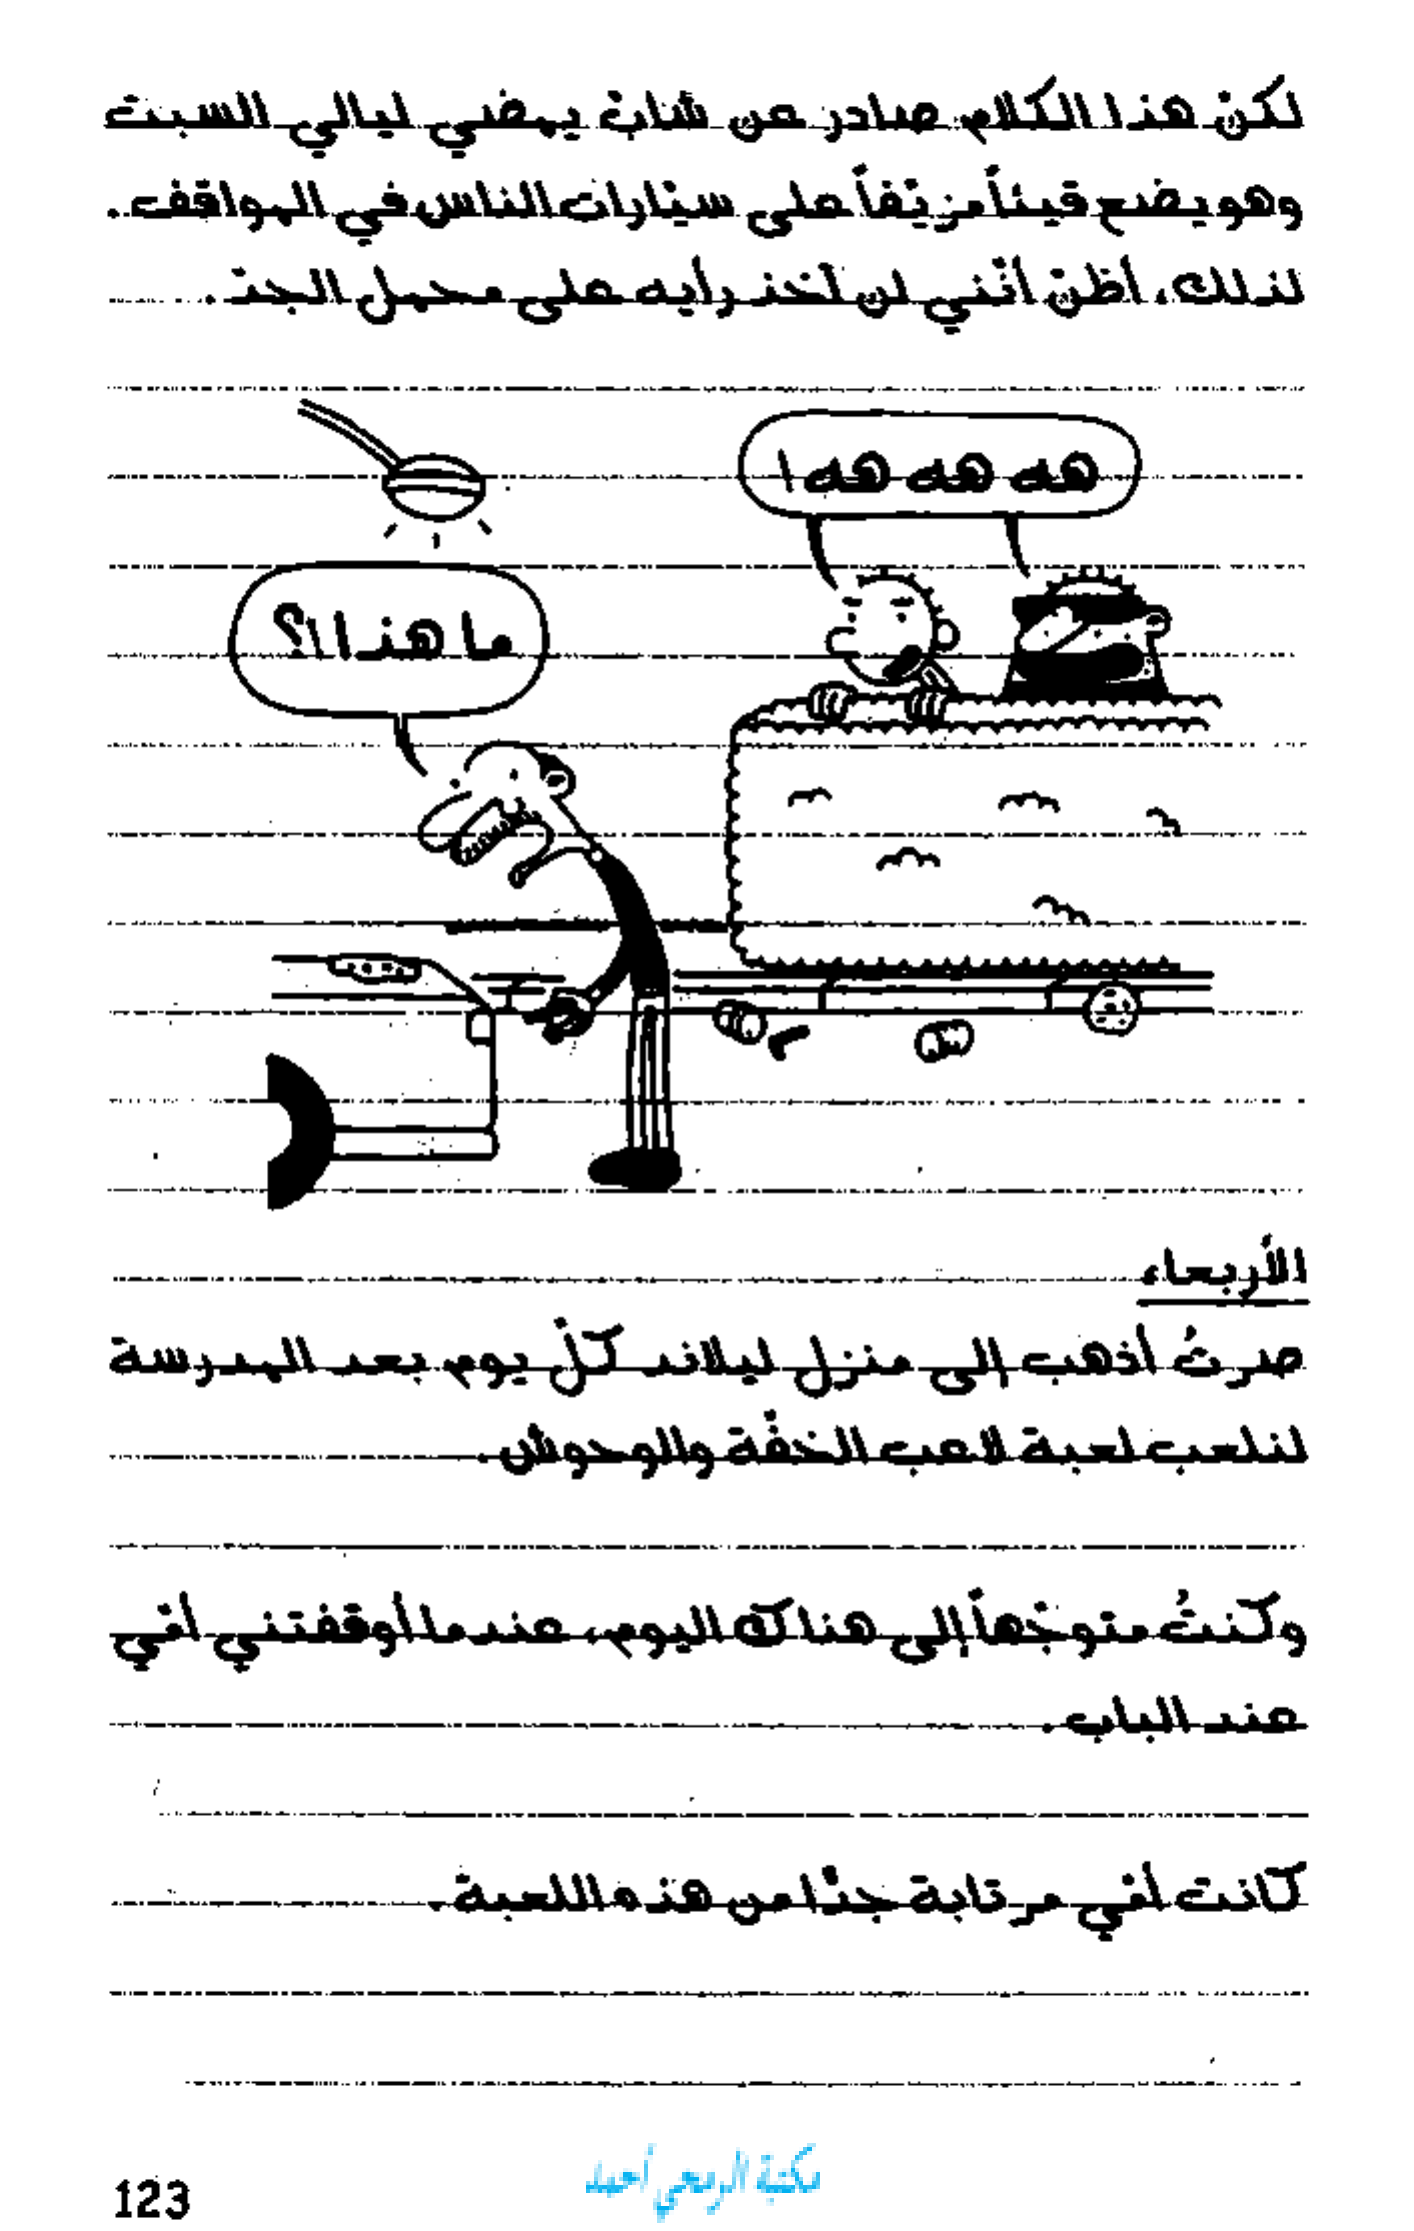 لكنّ هذا الكلام صادر عن شابّ يمضي ليالي السبت
وهو يضع قيئاً مزيّفاً على سيّارات الناس في المواقف.
لذلك، أظنّ أنّني لن آخذ رأيه على محمل الجدّ.
هه هه هه!
ما هذا!؟
الأربعاء
صرتُ أذهب إلى منزل ليلاند كلّ يوم بعد المدرسة
لنلعب لعبة لاعب الخفّة والوحوش.
وكنتُ متوجّهاً إلى هناك اليوم، عندما أوقفتني أمّي
عند الباب.
كانت أمّي مرتابة جدّا من هذه اللعبة.
مكتبة الرمحي أحمد
123